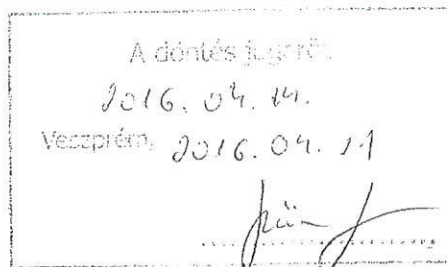 A döntés jogerős
2016. 04. 14.
Veszprém, 2016. 04. 21